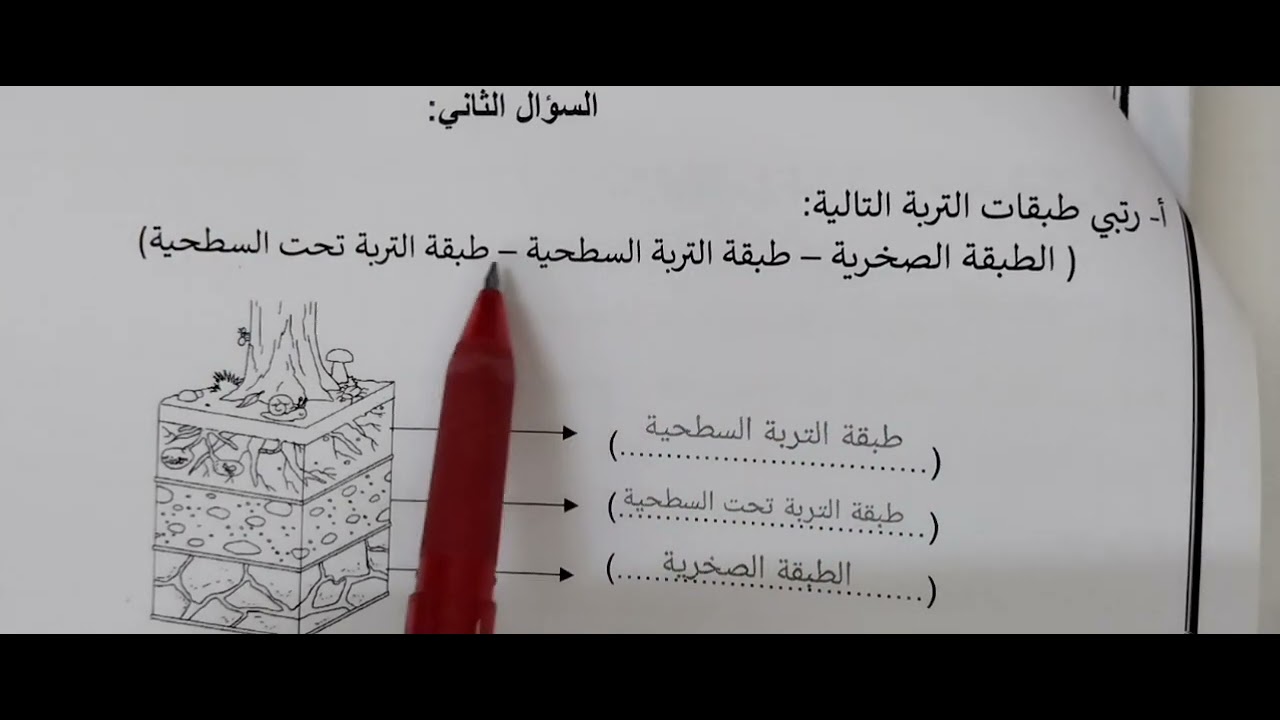 السؤال الثاني:
أ- رتبي طبقات التربة التالية:
( الطبقة الصخرية – طبقة التربة السطحية – طبقة التربة تحت السطحية)
(طبقة التربة السطحية)
(طبقة التربة تحت السطحية)
(الطبقة الصخرية)